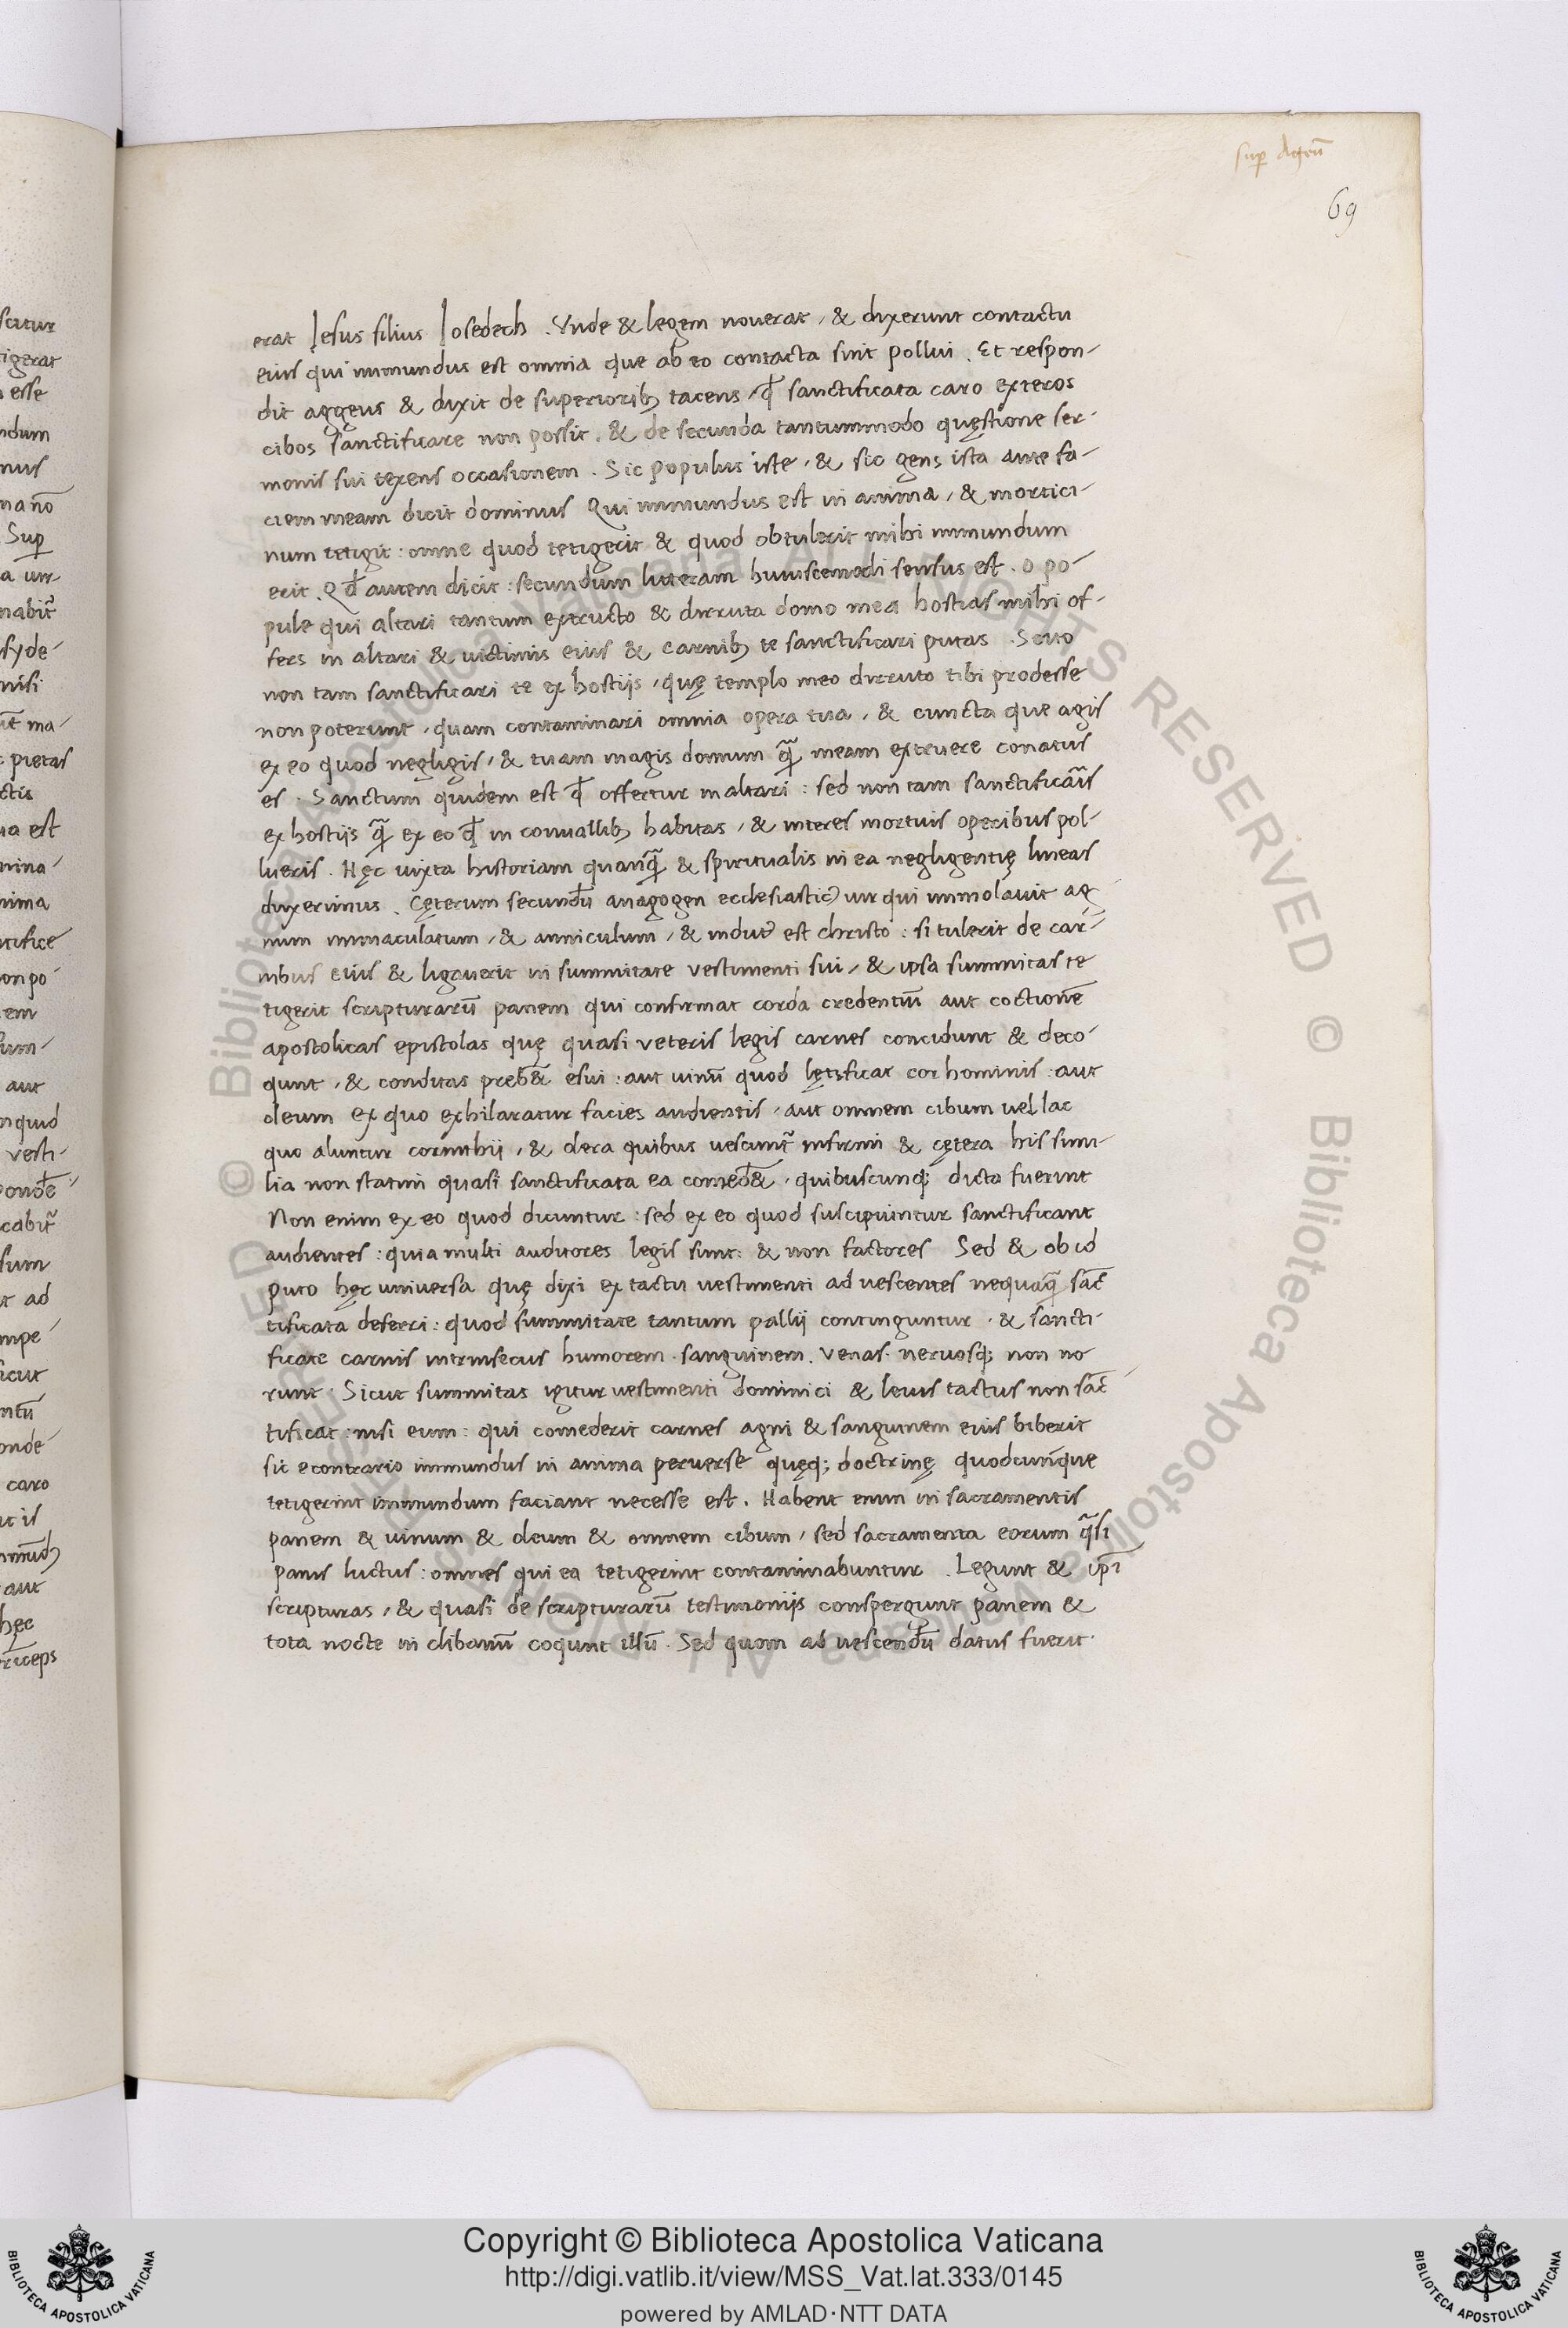 sup Ageū
69
erat Iesus filius Iosedech . Vnde & legem noverat , & dixerunt contactu
eius qui immundus est omnia que ab eo contacta sint pollui . Et respon-
dit aggeus & dixit de superiorib; tacens , qđ sanctificata caro exteros
cibos sanctificare non possit . & de secunda tantummodo quęstione ser-
monis sui texens occasionem . Sic populus iste , & sic gens ista ante fa-
ciem meam dicit dominus Qui immundus est in anima , & mortici-
num tetigit : omne quod tetigerit & quod obtulerit mihi immundum
erit . Qđ autem dicit : secundum litteram huiuscemodi sensus est . o po-
pule qui altari tantum extructo & diruta domo mea hostias mihi of-
fers in altari & uictimis eius & carnib; te sanctificari putas . Scito
non tam sanctificari te ex hostijs , quę templo meo dirruto tibi prodesse
non poterunt , quam contaminari omnia opera tua , & cuncta que agis
ex eo quod negligis , & tuam magis domum q̄ meam extruere conatus
es . Sanctum quidem est qđ offertur in altari : sed non tam sanctificar̄is
ex hostijs q̄ ex eo qđ in conuallib; habitas , & interes mortuis operibus pol-
lueris . Hęc iuxta historiam quanq̄ & spiritualis in ea negligentię lineas
duxerimus . Cęterum secundū anagogen ecclesiastic⁹ uir qui immolauit ag-
num immaculatum , & anniculum , & indut⁹ est christo : si tulerit de car-
nibus eius & ligauerit in summitate vestimenti sui , & ipsa summitas te
tigerit scripturarū panem qui confirmat corda credentiū aut coctionē
apostolicas epistolas quę quasi veteris legis carnes concidunt & deco-
qunt , & conditas preb̄& esui : aut uinū quod lętificat cor hominis : aut
oleum ex quo exhilaratur facies audientis , aut omnem cibum uel lac
quo aluntur corinthij , & olera quibus uescunt̄ infirmi & cętera his simi-
lia non statim quasi sanctificata ea comed̄& , quibuscunq; dicta fuerint
Non enim ex eo quod dicuntur : sed ex eo quod suscipiuintur sanctificant
audientes : quia multi auditores legis sunt : & non factores Sed & ob id
puto hęc universa quę dixi ex tactu uestimenti ad uescentes nequaq̄ sāc
tificata deferri : quod summitate tantum pallij continguntur . & sancti-
ficare carnis intrinsecus humorem . sanguinem . venas . neruosq; non no
runt . Sicut summitas igitur uestimenti dominici & leuis tactus non sāc
tificat : nisi eum : qui comederit carnes agni & sanguinem eius biberit
sic econtrario immundus in anima peruersę quęq; doctrinę quodcunque
tetigerint immundum faciant necesse est . Habent enim in sacramentis
panem & uinum & oleum & omnem cibum , sed sacramenta eorum q̄si
panis luctus : omnes qui ea tetigerint contaminabuntur . Legunt & ip̄i
scripturas , & quasi de scripturarū testimonijs conspergunt panem &
tota nocte in clibanū coqunt illū . Sed quom ad uescendū datus fuerit
Copyright © Biblioteca Apostolica Vaticana
http://digi.vatlib.it/view/MSS_Vat.lat.333/0145
powered by AMLAD·NTT DATA
BIBLIOTECA APOSTOLICA VATICANA
BIBLIOTECA APOSTOLICA VATICANA